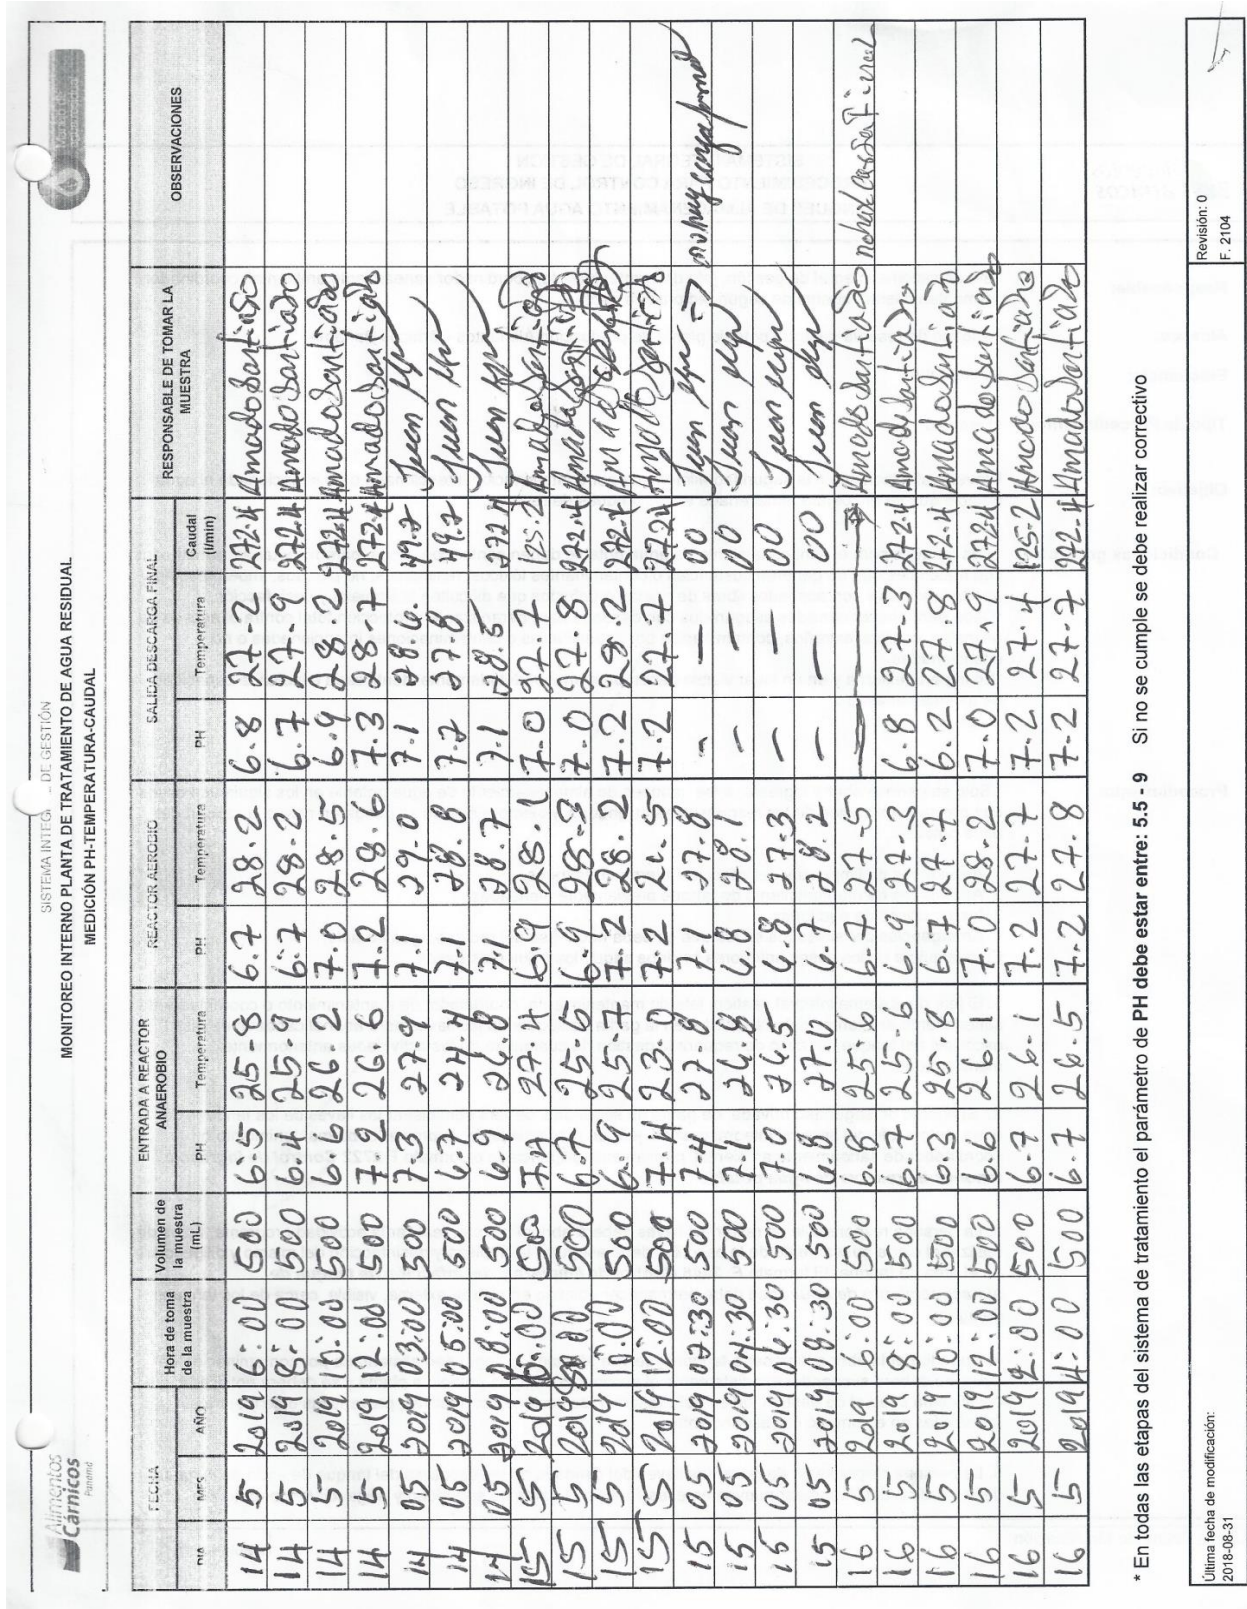 SISTEMA INTEG DE GESTIÓN
MONITOREO INTERNO PLANTA DE TRATAMIENTO DE AGUA RESIDUAL
MEDICIÓN PH-TEMPERATURA-CAUDAL
Alimentos
Cárnicos
Panamá
FECHA Hora de toma de la muestra Volumen de la muestra (mL) ENTRADA A REACTOR ANAEROBIO REACTOR AEROBIO SALIDA DESCARGA FINAL RESPONSABLE DE TOMAR LA MUESTRA OBSERVACIONES
DIA MES AÑO PH Temperatura PH Temperatura PH Temperatura Caudal (l/min)
14 5 2019 6:00 500 6.5 25.8 6.7 28.2 6.8 27.2 272.4 Amado Santiago
14 5 2019 8:00 500 6.4 25.9 6.7 28.2 6.7 27.9 272.4 Amado Santiado
14 5 2019 10:00 500 6.6 26.2 7.0 28.5 6.9 28.2 272.4 Amado Santiado
14 5 2019 12:00 500 7.2 26.6 7.2 28.6 7.3 28.7 272.4 Amado Santiado
14 05 2019 03:00 500 7.3 27.9 7.1 29.0 7.1 28.6. 49.7 Juan
14 05 2019 05:00 500 6.7 24.4 7.1 28.8 7.2 27.8 49.7 Juan
14 05 2019 08:00 500 6.9 26.8 7.1 28.7 7.1 28.5 272.4 Juan
15 5 2019 6:00 500 7.4 27.4 6.9 28.1 7.0 27.7 125.2 Amado Santiado
15 5 2019 8:00 500 6.7 25.6 6.9 28.3 7.0 27.8 272.4 Amado Santiado
15 5 2019 10:00 500 6.9 25.7 7.2 28.2 7.2 28.2 272.4 Amado Santiado
15 5 2019 12:00 500 7.4 23.0 7.2 2 .5 7.2 27.7 272.4 Amado Santiado
15 05 2019 02:30 500 7.4 27.8 7.1 27.8 - — 00 Juan → no hay
15 05 2019 04:30 500 7.1 26.8 6.8 28.1 — — 00 Juan
15 05 2019 06:30 500 7.0 26.5 6.8 27.3 — — 00 Juan
15 05 2019 08:30 500 6.8 27.0 6.7 28.2 — — 00 Juan
16 5 2019 6:00 500 6.8 25.6 6.7 27.5 Amado Santiado
16 5 2019 8:00 500 6.7 25.6 6.9 27.3 6.8 27.3 272.4 Amado Santiado
16 5 2019 10:00 500 6.3 25.8 6.7 27.7 6.2 27.8 272.4 Amado Santiado
16 5 2019 12:00 500 6.6 26.1 7.0 28.2 7.0 27.9 272.4 Amado Santiado
16 5 2019 2:00 500 6.7 26.1 7.2 27.7 7.2 27.4 125.2 Amado Santiado
16 5 2019 4:00 500 6.7 26.5 7.2 27.8 7.2 27.7 272.4 Amado Santiado
* En todas las etapas del sistema de tratamiento el parámetro de PH debe estar entre: 5.5 - 9 Si no se cumple se debe realizar correctivo
Última fecha de modificación:
2018-08-31
Revisión: 0
F. 2104